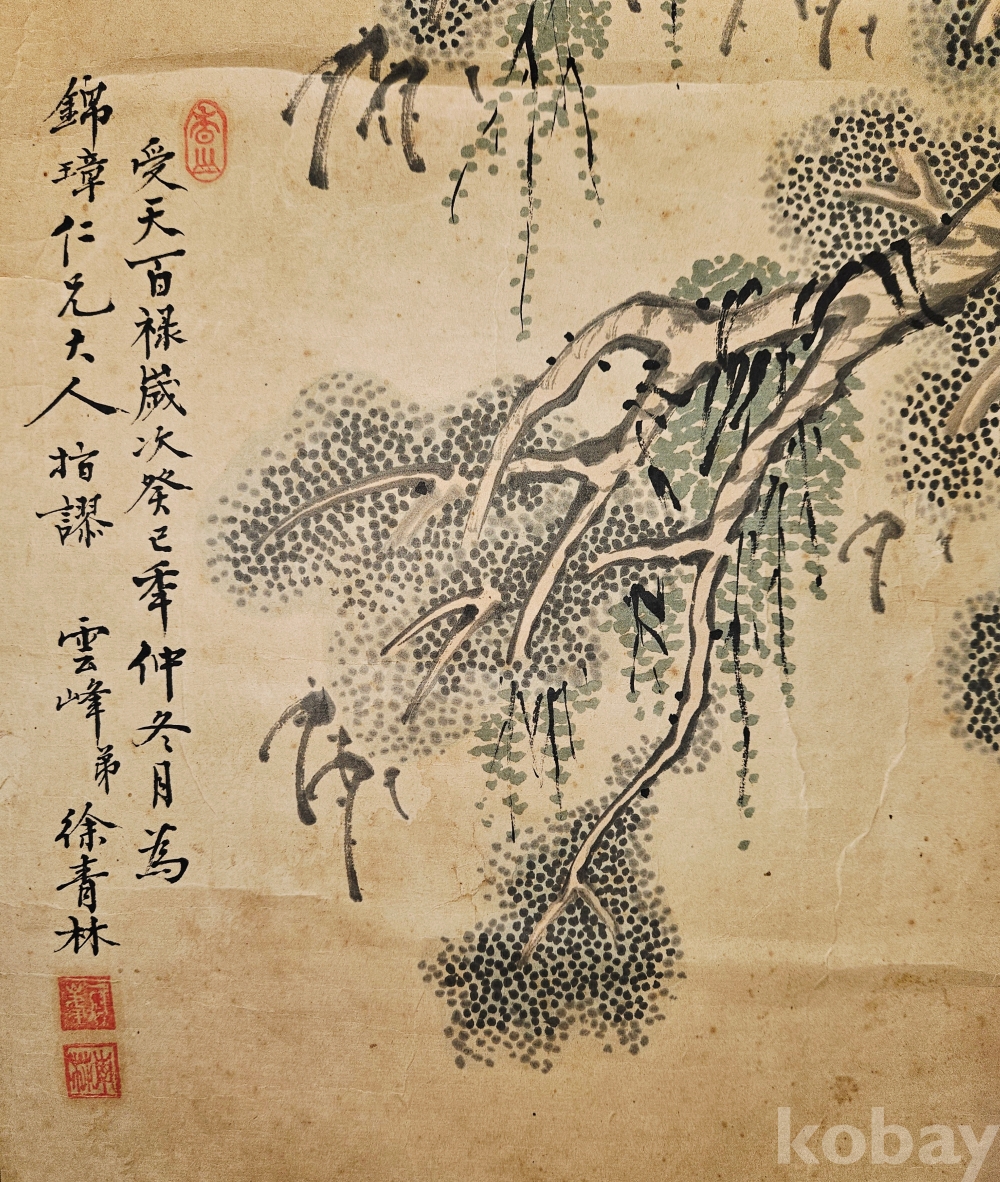 受天百禄歲次癸巳年仲冬月為
錦璋仁兄大人指謬 雲峰弟徐青林
kobay